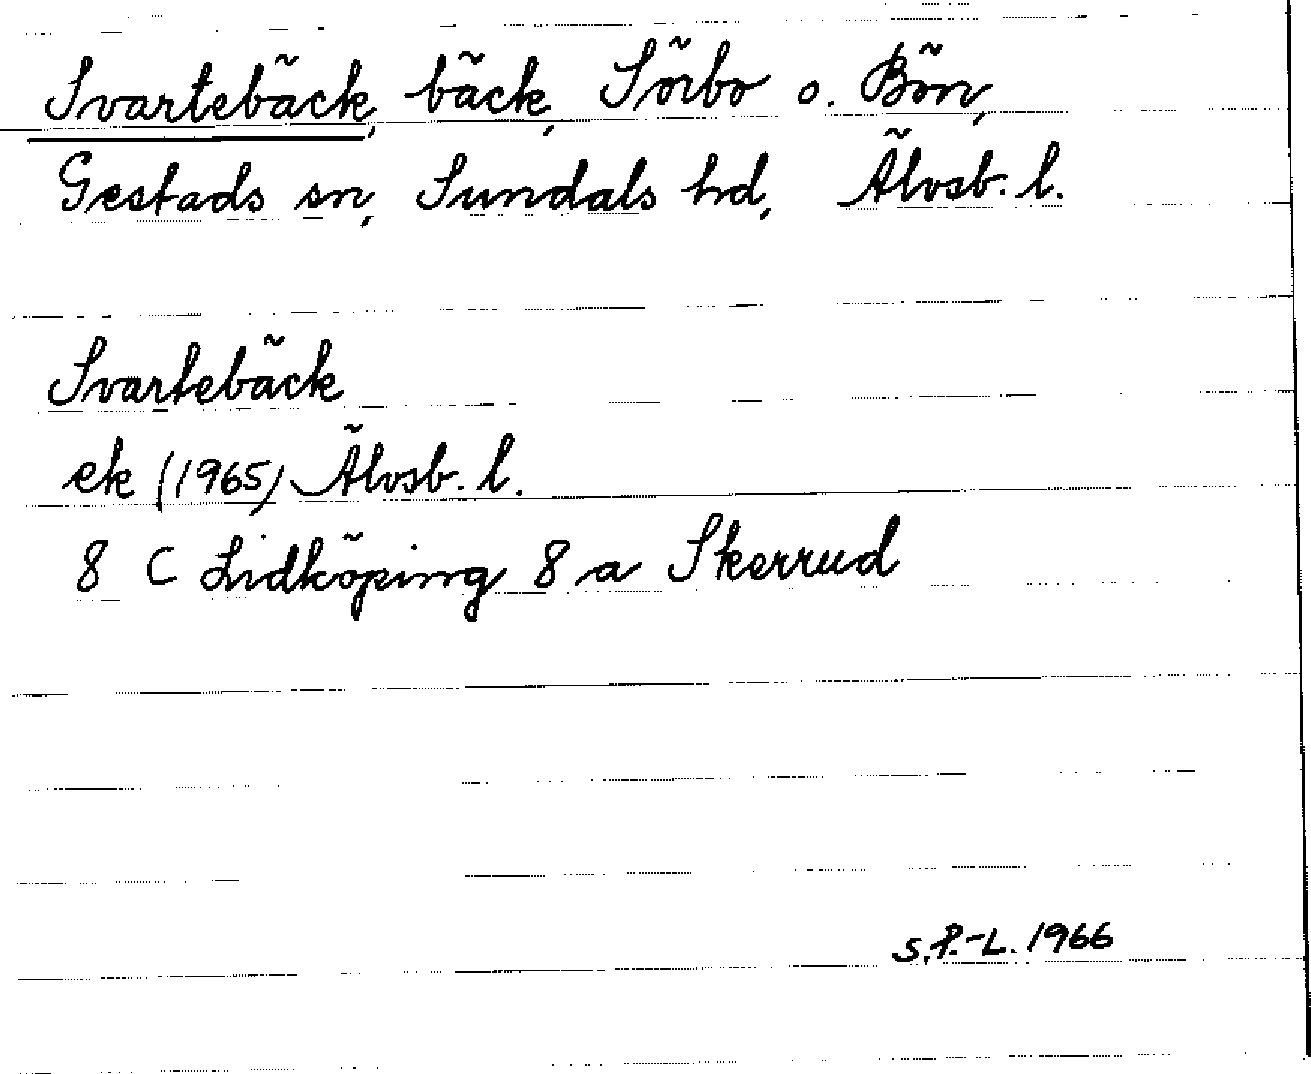 Svartebäck, bäck, Sörbo o. Bön,
Gestads sn, Sundals hd, Älvsb. l.
Svartebäck
ek (1965) Älvsb. l.
8 C Lidköping 8 a Skerrud
S.P.-L. 1966